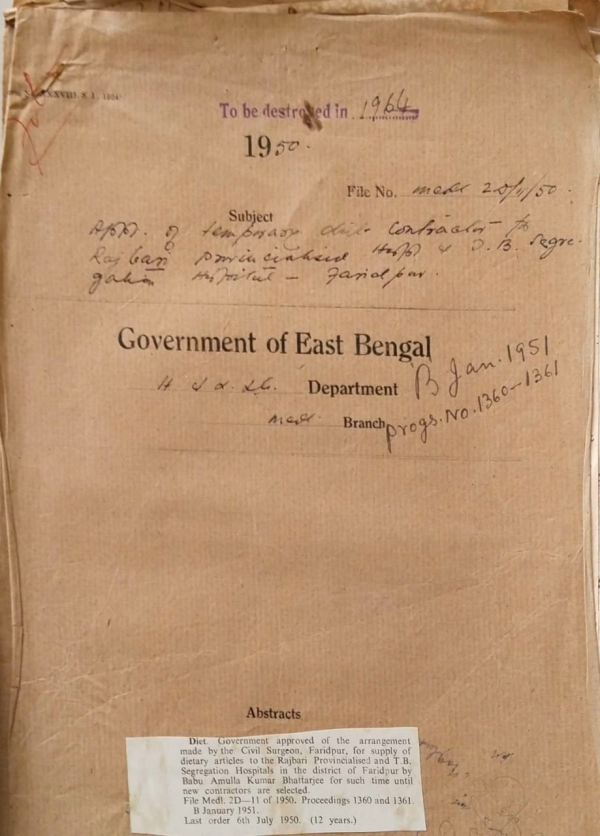 To be destroyed in 1964
1950.
File No. Medl 2D/11/50.
Subject
Appt. of temporary diet contractor to
Rajbari Provincialised Hospt & T.B. Segre-
gation Hospital – Faridpur.
Government of East Bengal
Department
B Jan. 1951
Medl. Branch
Progs. No. 1360-1361
Abstracts
Diet. Government approved of the arrangement
made by the Civil Surgeon, Faridpur, for supply of
dietary articles to the Rajbari Provincialised and T.B.
Segregation Hospitals in the district of Faridpur by
Babu Amulla Kumar Bhattarjee for such time until
new contractors are selected.
File Medl. 2D—11 of 1950. Proceedings 1360 and 1361.
B January 1951.
Last order 6th July 1950. (12 years.)